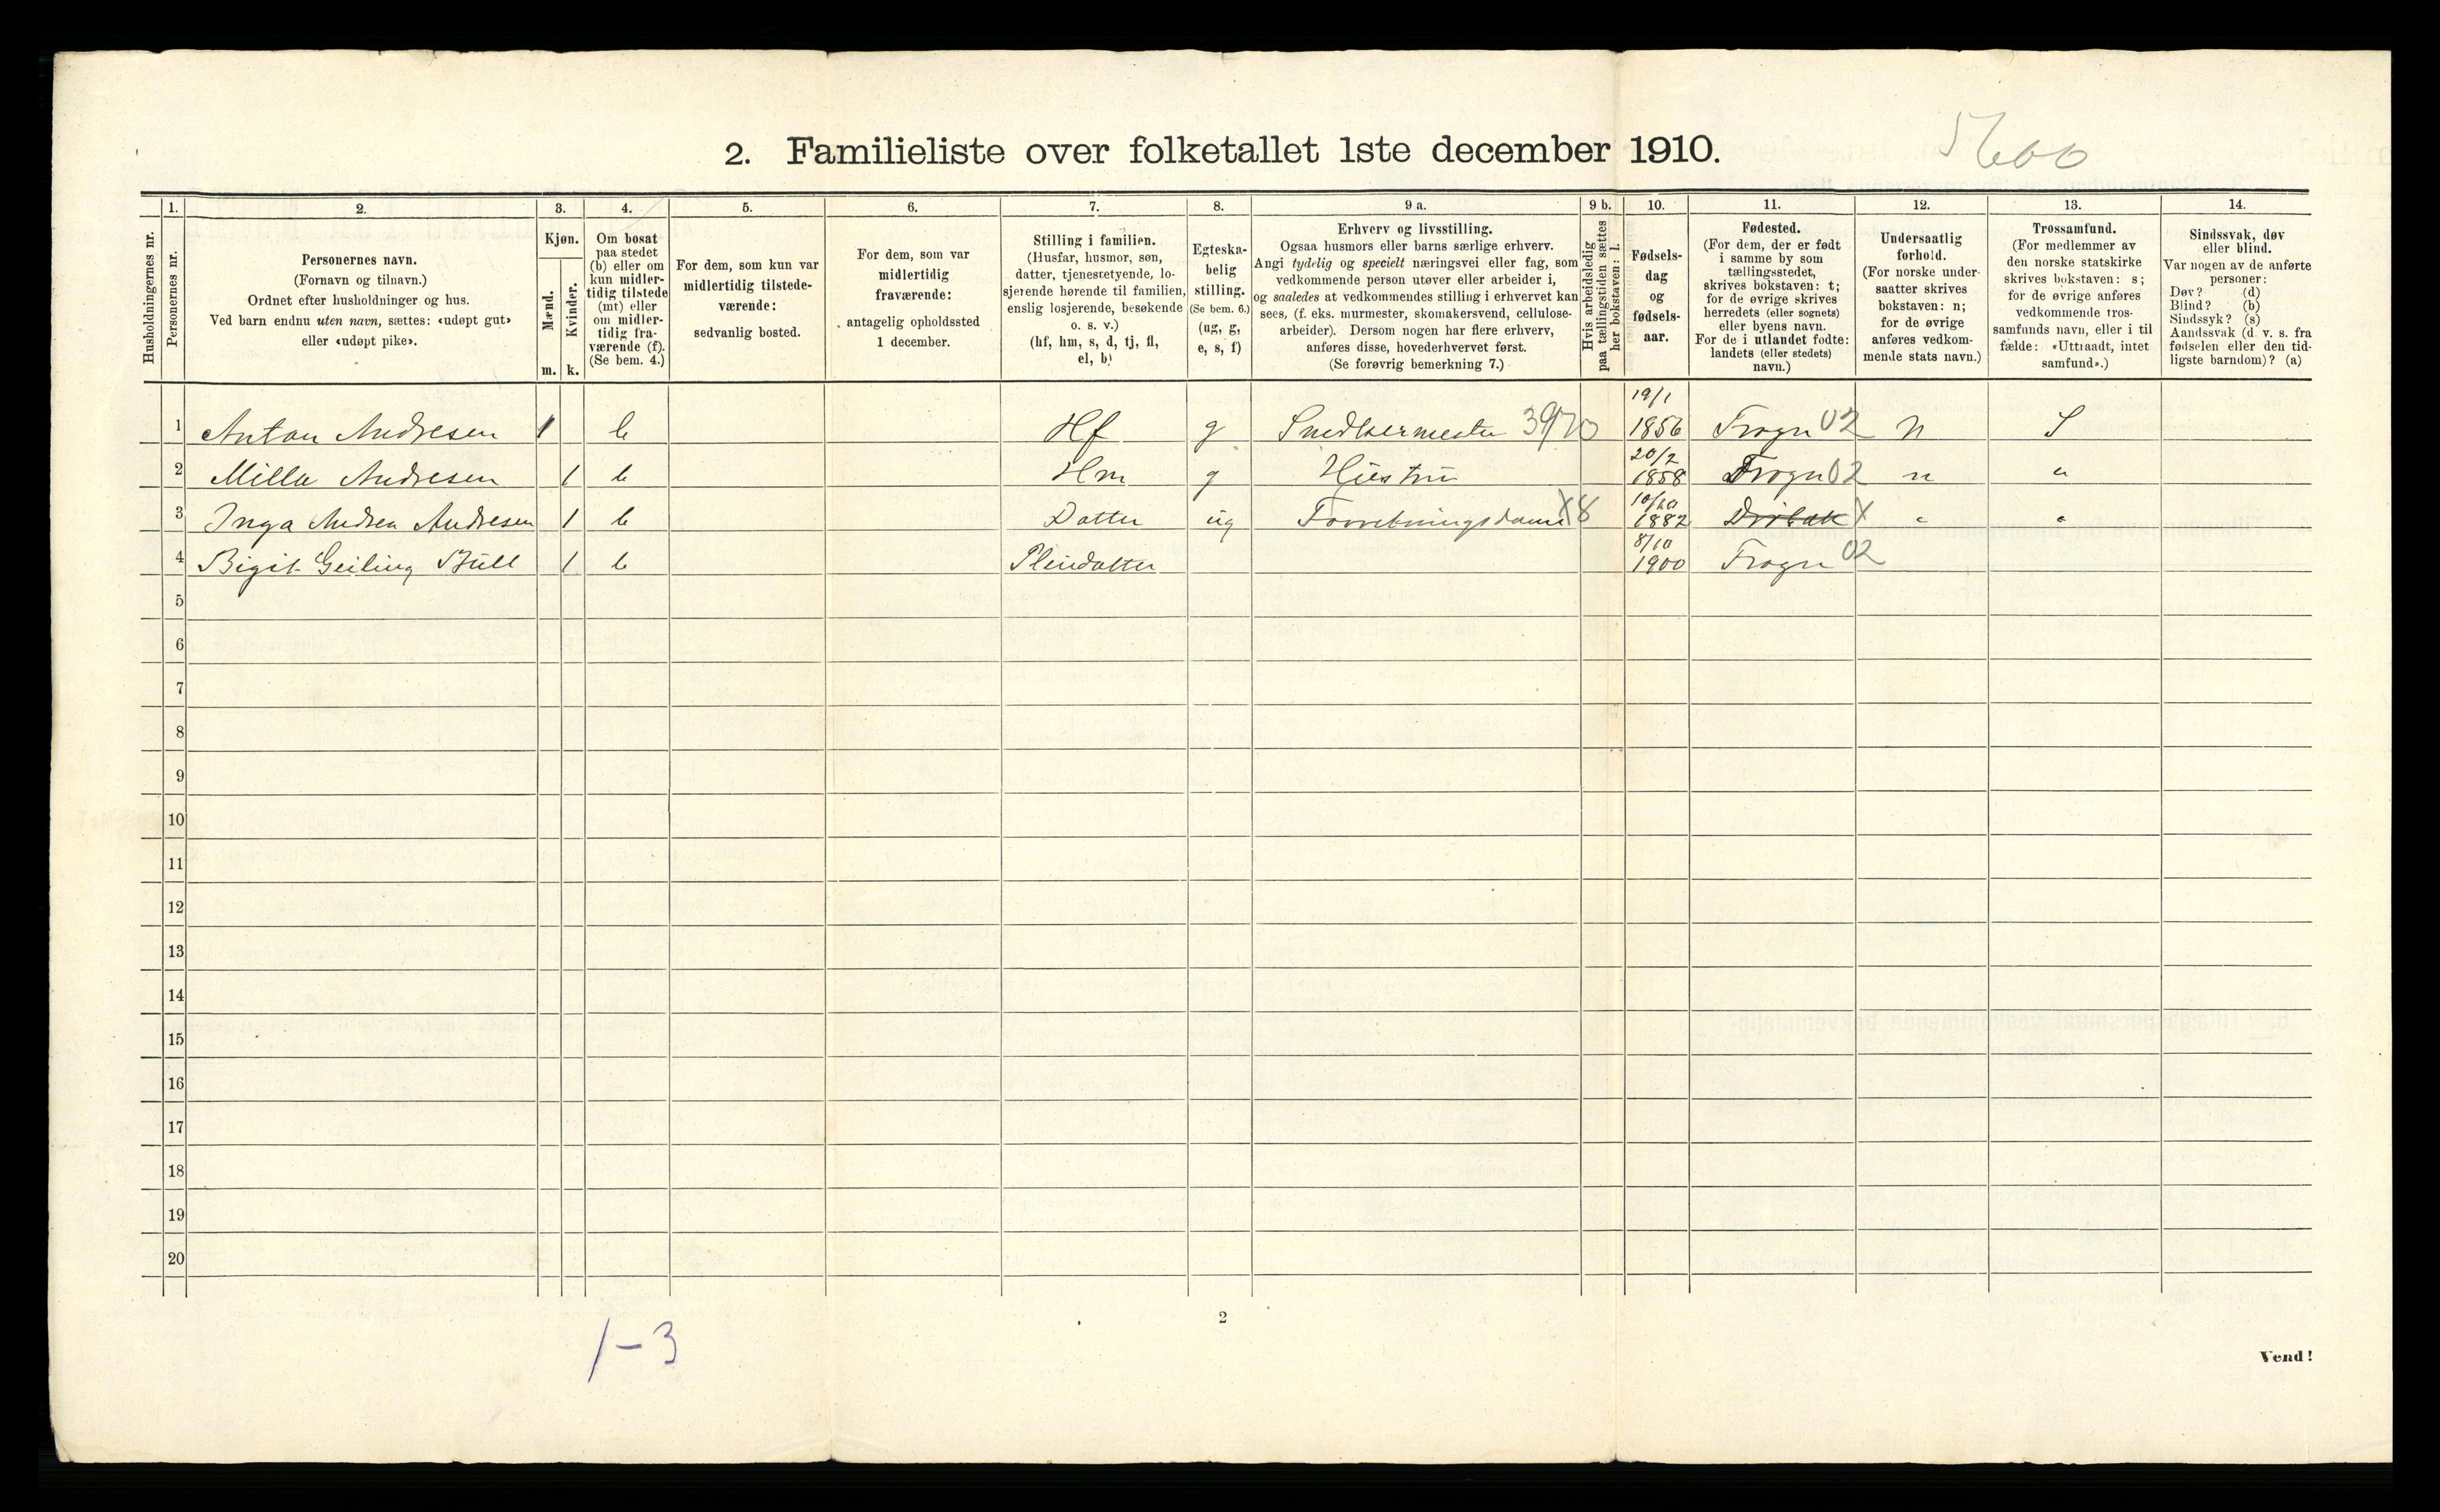 2. Familieliste over folketallet 1ste december 1910.
5600
Husholdningernes nr.
1.
Personernes nr.
2.
Personernes navn.
(Fornavn og tilnavn.)
Ordnet efter husholdninger og hus.
Ved barn endnu uten navn, sættes: «udøpt gut»
eller «udøpt pike».
3.
Kjøn.
Mænd.
Kvinder.
m. k.
4.
Om bosat
paa stedet
(b) eller om
kun midler-
tidig tilstede
(mt) eller
om midler-
tidig fra-
værende (f).
(Se bem. 4.)
5.
For dem, som kun var
midlertidig tilstede-
værende:
sedvanlig bosted.
6.
For dem, som var
midlertidig
fraværende:
antagelig opholdssted
1 december.
7.
Stilling i familien.
(Husfar, husmor, søn,
datter, tjenestetyende, lo-
sjerende hørende til familien,
enslig losjerende, besøkende
o. s. v.)
(hf, hm, s, d, tj, fl,
el, b)
8.
Egteska-
belig
stilling.
(Se bem. 6.)
(ug, g,
e, s, f)
9 a.
Erhverv og livsstilling.
Ogsaa husmors eller barns særlige erhverv.
Angi tydelig og specielt næringsvei eller fag, som
vedkommende person utøver eller arbeider i,
og saaledes at vedkommendes stilling i erhvervet kan
sees, (f. eks. murmester, skomakersvend, cellulose-
arbeider). Dersom nogen har flere erhverv,
anføres disse, hovederhvervet først.
(Se forøvrig bemerkning 7.)
9 b.
Hvis arbeidsledig
paa tællingstiden sættes
her bokstaven: l.
10.
Fødsels-
dag
og
fødsels-
aar.
11.
Fødested.
(For dem, der er født
i samme by som
tællingsstedet,
skrives bokstaven: t;
for de øvrige skrives
herredets (eller sognets)
eller byens navn.
For de i utlandet fødte:
landets (eller stedets)
navn.)
12.
Undersaatlig
forhold.
(For norske under-
saatter skrives
bokstaven: n;
for de øvrige
anføres vedkom-
mende stats navn.)
13.
Trossamfund.
(For medlemmer av
den norske statskirke
skrives bokstaven: s;
for de øvrige anføres
vedkommende tros-
samfunds navn, eller i til-
fælde: «Uttraadt, intet
samfund».)
14.
Sindssvak, døv
eller blind.
Var nogen av de anførte
personer:
Døv? (d)
Blind? (b)
Sindssyk? (s)
Aandssvak (d. v. s. fra
fødselen eller den tid-
ligste barndom)? (a)
1 Anton Andresen 1 b Hf g Snedkermester 3970 19/1 1856 Frogn 02 n S
2 Milla Andresen 1 b Hm g Hustru 20/2 1858 Frogn 02 n "
3 Inga Andrea Andresen 1 b Datter ug Forretningsdame X8 1882 Drøbak X " "
4 Bigit Geiling Bull 1 b Pleiedatter 8/10 1900 Frogn 02
5
6
7
8
9
10
11
12
13
14
15
16
17
18
19
20
2
1-3
Vend!